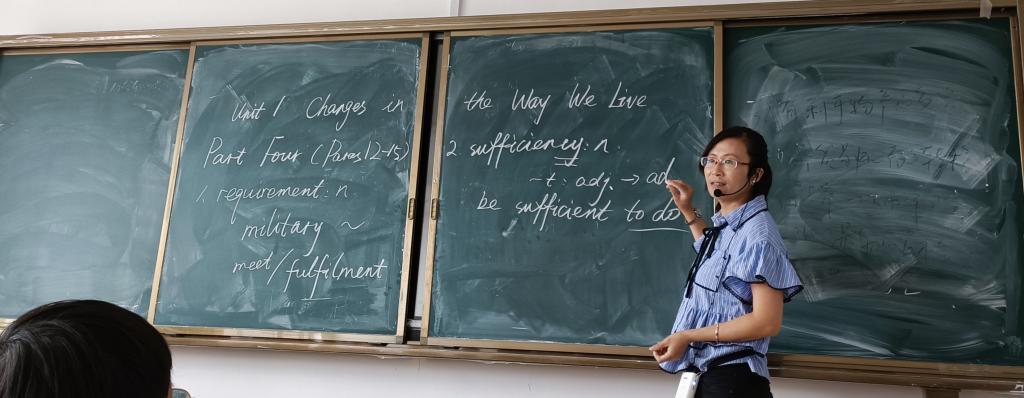 Unit 1 Changes in the Way We Live
Part Four (Paras12-15)
1. requirement: n
military ~
meet/fulfilment
2. sufficiency: n.
~t: adj. → ad
be sufficient to do